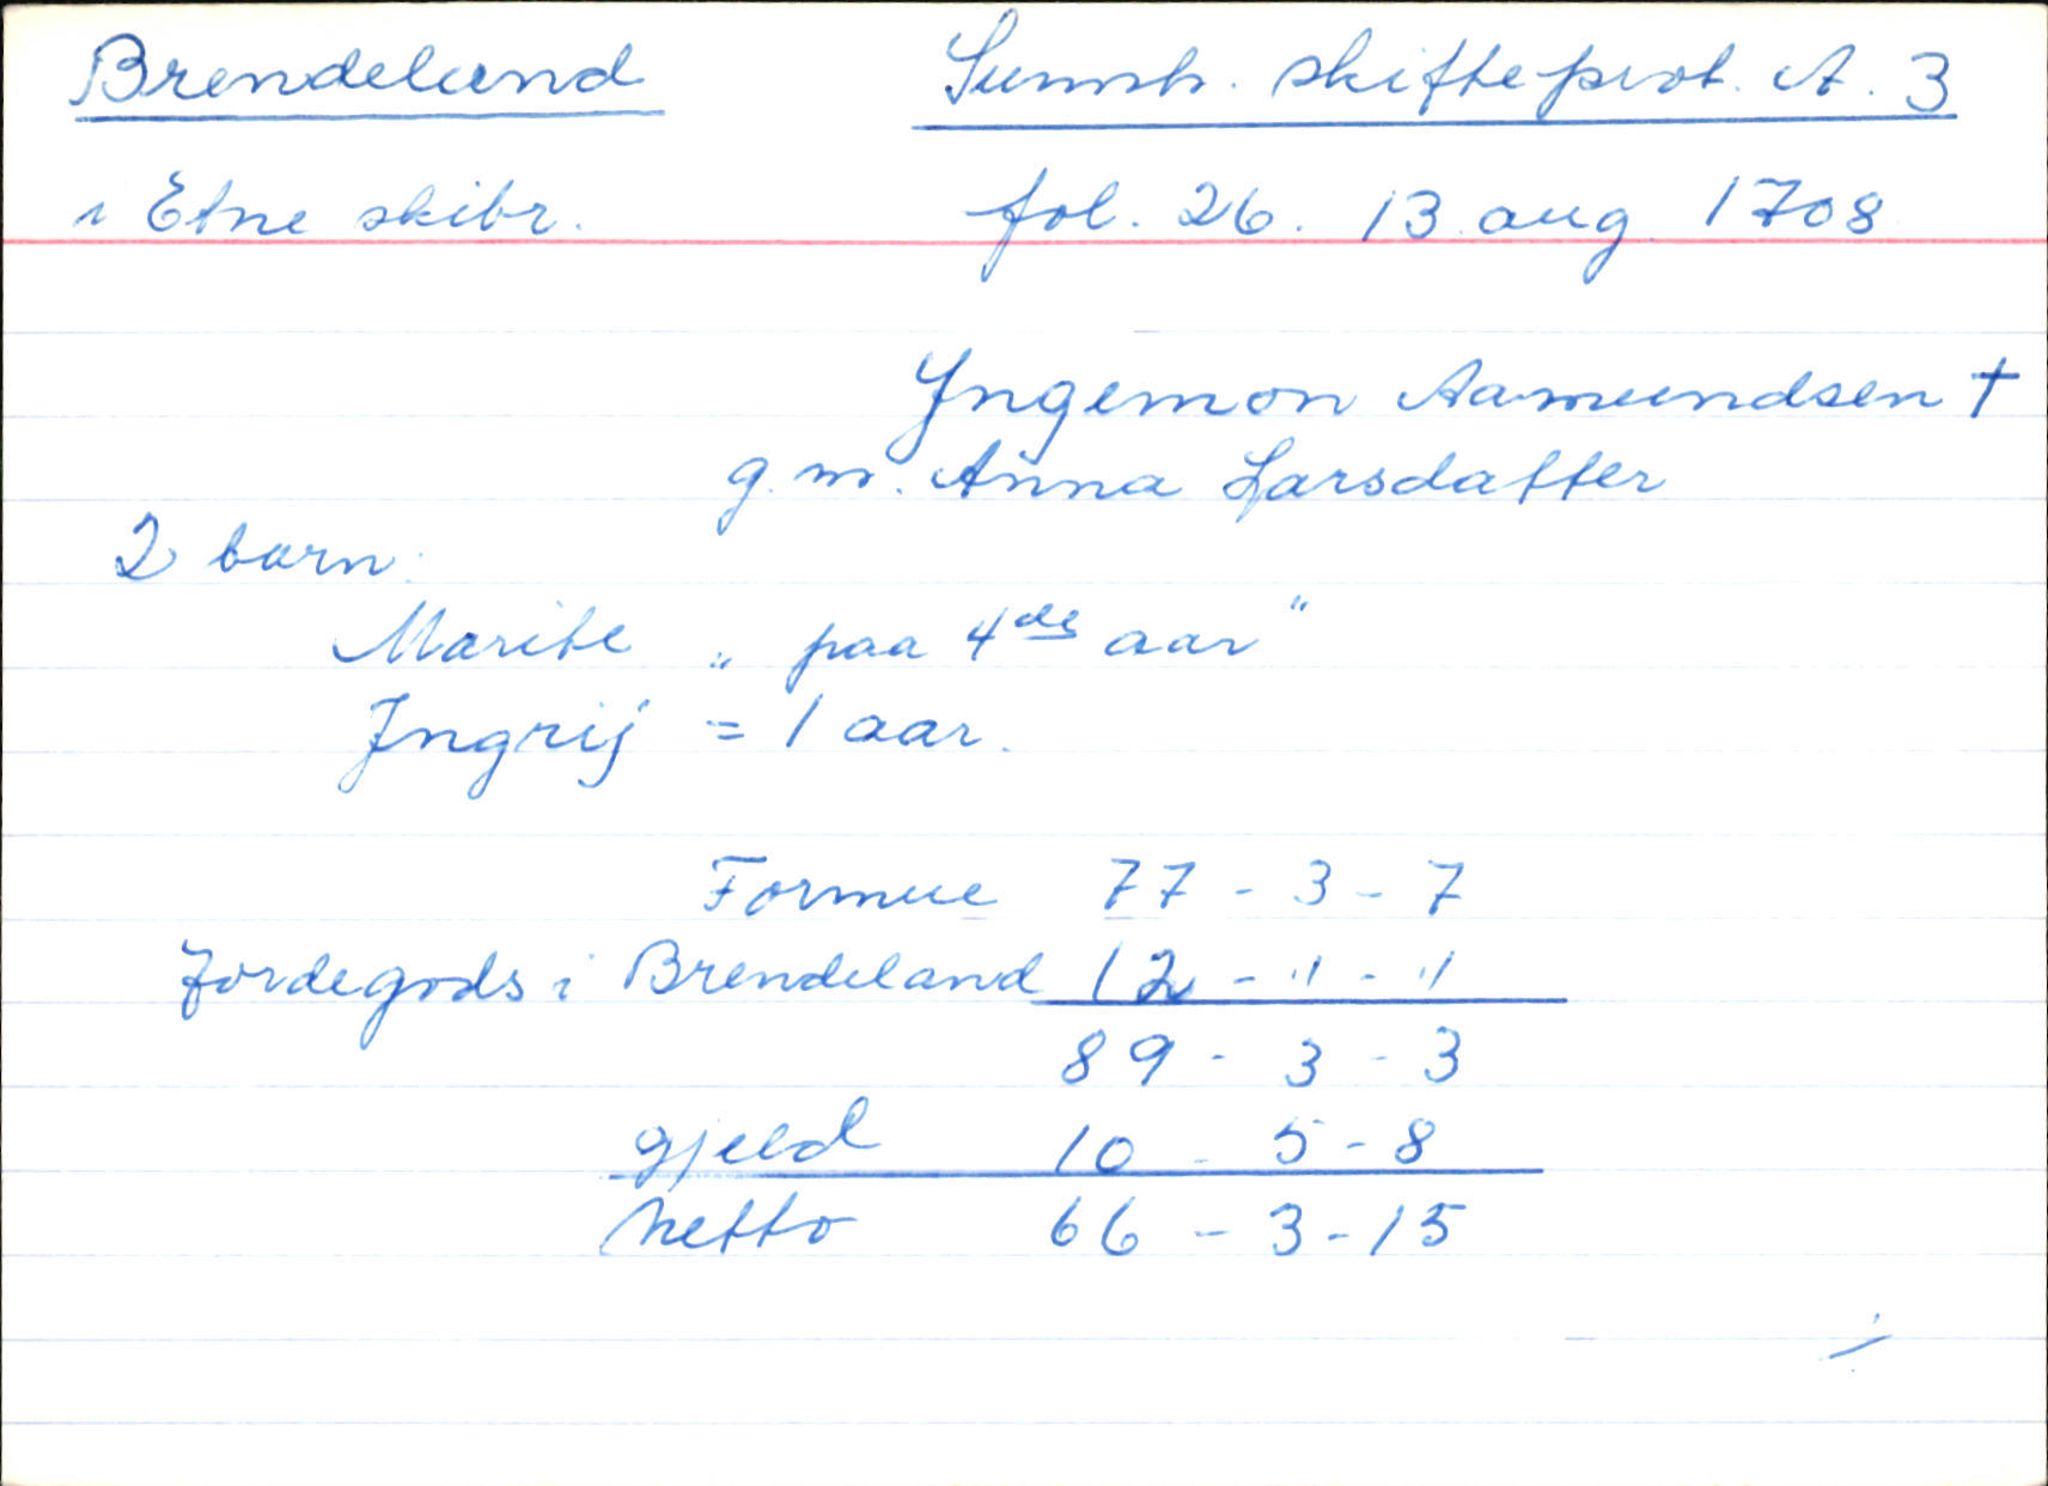 Brendeland Sunnh. skifteprot. A. 3
i Etne skibr. fol. 26. 13 aug. 1708
Yngemon Aamundsen †
g. m. Anna Larsdatter
2 barn:
Marite „ paa 4de aar"
Jngrij = 1 aar.
Formue 77 - 3 - 7
Jordegods i Brendeland 12 - " - "
89 - 3 - 3
gjeld 10 - 5 - 8
Netto 66 - 3 - 15